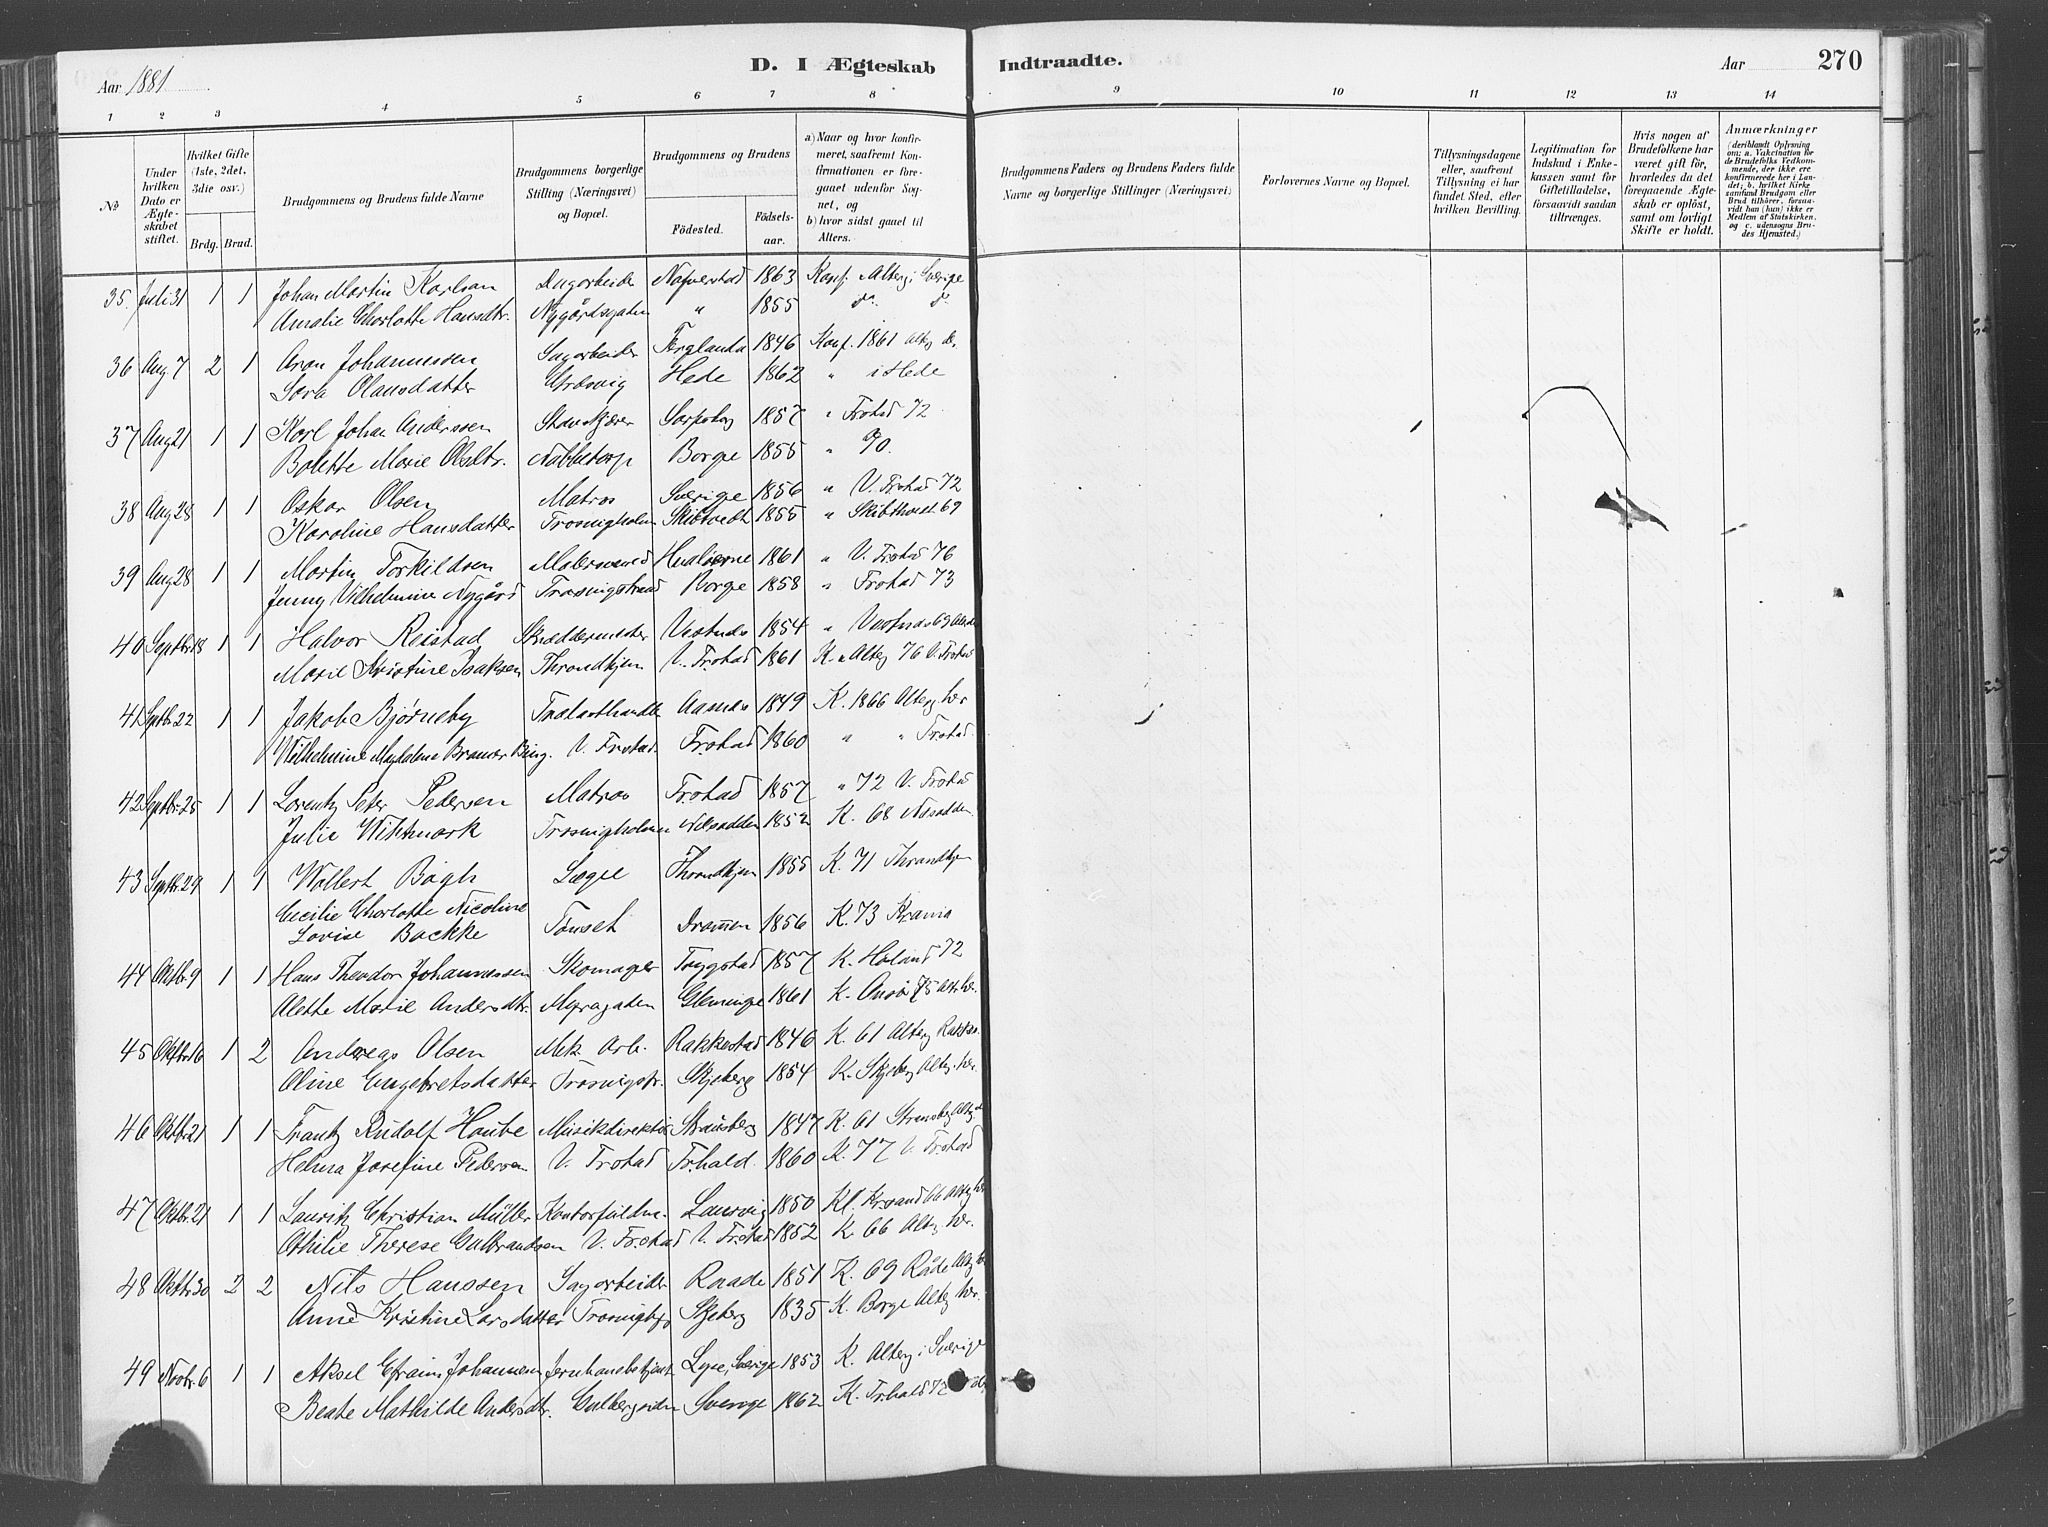 Aar 1881
D. I Ægteskab
Indtraadte.
Aar
270
1 2 3 4 5 6 7 8 9 10 11 12 13 14
№
Under hvilken Dato er Ægteskabet stiftet.
Hvilket Gifte (1ste, 2det, 3die osv.)
Brdg. Brud.
Brudgommens og Brudens fulde Navne
Brudgommens borgerlige Stilling (Næringsvei) og Bopæl.
Brudgommens og Brudens
Födested.
Födselsaar.
a) Naar og hvor konfirmeret, saafremt Konfirmationen er foregaaet udenfor Sognet, og
b) hvor sidst gaaet til Alters.
Brudgommens Faders og Brudens Faders fulde Navne og borgerlige Stillinger (Næringsvei)
Forlovernes Navne og Bopæl.
Tillysningsdagene eller, saafremt Tillysning ei har fundet Sted, efter hvilken Bevilling.
Legitimation for Indskud i Enkekassen samt for Giftetilladelse, forsaavidt saadan tiltrænges.
Hvis nogen af Brudefolkene har været gift för, hvorledes da det foregaaende Ægteskab er oplöst, samt om lovligt Skifte er holdt.
Anmærkninger (deriblandt Oplysning om: a. Vakcination for de Brudefolks Vedkommende, der ikke ere konfirmerede her i Landet; b. hvilket Kirkesamfund Brudgom eller Brud tilhörer, forsaavidt han (hun) ikke er Medlem af Statskirken, og c. udensogns Brudes Hjemsted.)
35 Juli 31 1 1 Johan Martin Karlson Dagarbeider Nafverstad 1863 Konf. Alterg. i Sverige
Amalie Charlotte Hansdtr. Nygårdsgaden " 1855 do. do
36 Aug 7 2 1 Aron Johannessen Sagarbeider Færglanda 1846 Konf. 1861 Altg
Sara Olausdatter Græsvig Hede 1862 " i Hede
37 Aug 21 1 1 Karl Johan Anderssen Stavskjærer Sarpsborg 1857 " Frstad 72
Bolette Marie Olsdtr. Nabbetorp Borge 1855 " 70.
38 Aug 28 1 1 Oskar Olsen Matros Sverige 1856 " V. Frstad 72
Karoline Hansdatter Trosvigholm Skibtvedt 1855 " Skibthvedt 69
39 Aug 28 1 1 Martin Torkildsen Malersvend Hvaløerne 1861 " V. Frstad 76
Jenny Vilhelmine Nygård Trosvigstrand Borge 1858 " Frstad 73
40 Septbr 18 1 1 Halvor Reistad Skræddermester Vestnes 1854 " Vestnes 69
Marie Kristine Isaksen Throndhjem V. Frstad 1861 K. Alterg 76 V. Frstad
41 Septbr 22 1 1 Jakob Bjørneby Trælasthandler Aasnes 1849 K. 1866 Alterg her
Wilhelmine Magdalene Bing. V. Frstad. Frstad 1860 " " Frstad
42 Septbr. 25 1 1 Lorentz Peter Pedersen Matros Frstad 1857 " 72 V. Frstad
Julie Wittmark Trosvigholmen Nesodden 1852 K. 68 Nesodden
43 Septbr. 29 1 1 Wollert Bøgh Læge Throndhjem 1855 K. 71 Throndhjem
Cecilie Charlotte Nicoline
Lovise Backke Tønset Drammen 1856 K. 73 Krania
44 Oktbr. 9 1 1 Hans Theodor Johannessen Skomager Trygstad 1857 K. Høland 72
Alette Marie Andersdtr. Myragaden Glemminge 1861 K. Onsø 75 Alt. her.
45 Oktbr 16 1 2 Andreas Olsen Mek. Arb. Rakkestad 1846 K. 61 Alterg Rakkes.
Oline Engebretsdatter Trosvigstr. Skjeberg 1854 K. Skjeberg Altg. her.
46 Oktbr 21 1 1 Frantz Rudolf Haube Musikdirektør Strausberg 1847 K. 61
Helma Josefine Pedersen V. Frstad Fr.hald. 1860 K. 77 V. Frstad
47 Oktbr. 21 1 1 Lauritz Christian Müller Laurvig 1850 K. Krsand 66 Altg her
Othilie Therese Gulbrandsen V. Frstad V. Frstad 1852 K. 66 Altg her.
48 Oktbr 30 2 2 Nils Hanssen Sagarbeider Raade 1851 K. 69 Råde Altg
Anne Kristine Larsdatter Skjeberg 1835 K. Borge Altg her.
49 Novbr. 6 1 1 Aksel Efraim Johannesen Jernbanebetjent Lyse, Sverige 1853 K. Alterg i Sverige
Beate Mathilde Andersdtr. Sverige 1862 K. Fr.hald